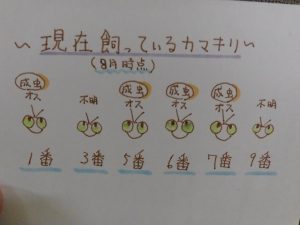 ～現在飼っているカマキリ～
(8月時点)
成虫 成虫 成虫 成虫
オス 不明 オス オス オス 不明
1番 3番 5番 6番 7番 9番